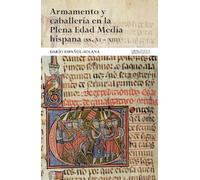 Armamento y
caballería en la
Plena Edad Media
hispana (ss. XI – XIII)
DARÍO ESPAÑOL-SOLANA